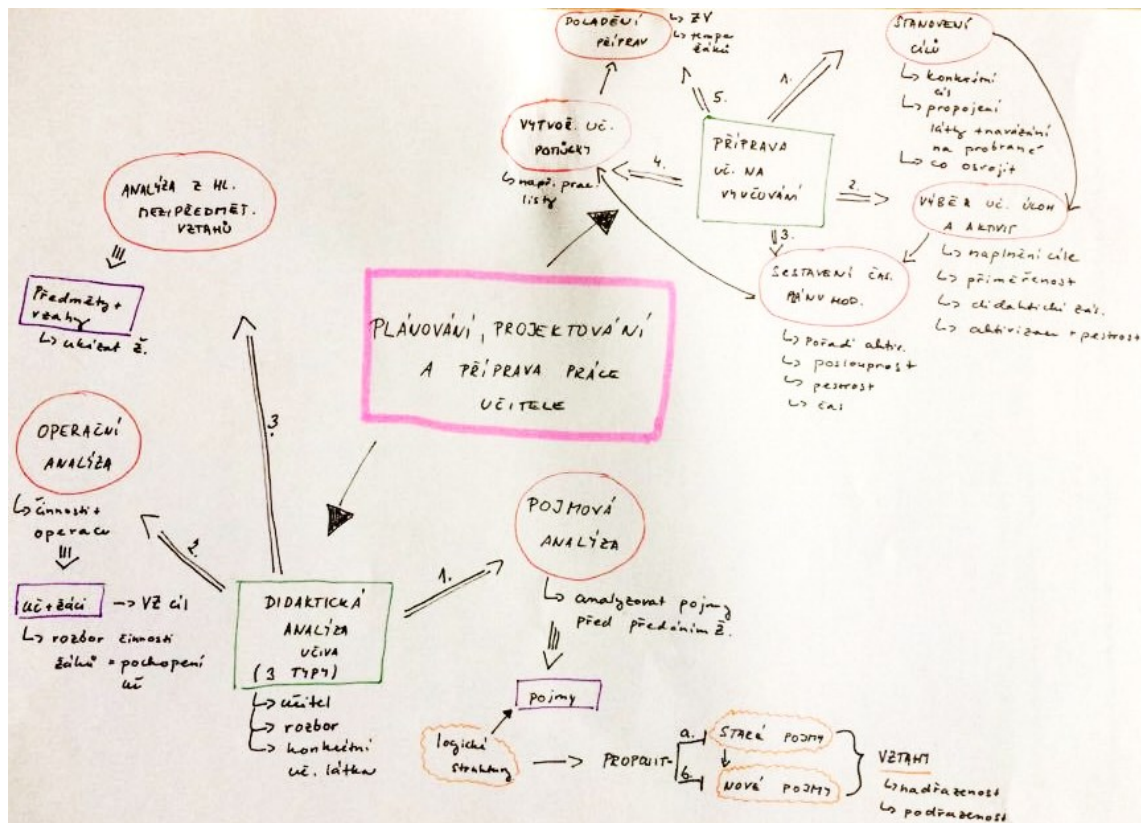 DOLADĚNÍ
PŘÍPRAV
↳ ZV
↳ tempo
žáků
STANOVENÍ
CÍLŮ
↳ konkrétní
cíl
↳ propojení
látky + navázání
na probrané
↳ co osvojit
1.
5.
VYTVOŘ. UČ.
POMŮCKY
↳ např. prac.
listy
4.
PŘÍPRAVA
UČ. NA
VYUČOVÁNÍ
2.
3.
VÝBĚR UČ. ÚLOH
A AKTIVIT
↳ naplnění cíle
↳ přiměřenost
↳ didaktické zás.
↳ aktivizace + pestrost
SESTAVENÍ ČAS.
PLÁNU HOD.
↳ pořadí aktiv.
↳ posloupnost
↳ pestrost
↳ čas
ANALÝZA Z HL.
MEZIPŘEDMĚT.
VZTAHŮ
Předměty +
vztahy
↳ ukázat ž.
PLÁNOVÁNÍ, PROJEKTOVÁNÍ
A PŘÍPRAVA PRÁCE
UČITELE
3.
OPERAČNÍ
ANALÝZA
↳ činnosti +
operace
2.
uč + žáci → VZ cíl
↳ rozbor činnosti
žáků = pochopení
uč
DIDAKTICKÁ
ANALÝZA
UČIVA
(3 TYPY)
↳ učitel
↳ rozbor
↳ konkrétní
uč. látka
1.
POJMOVÁ
ANALÝZA
↳ analyzovat pojmy
před předáním ž.
pojmy
logické
struktury
→ PROPOJIT
a. STARÉ POJMY
b. NOVÉ POJMY
VZTAHY
↳ nadřazenost
↳ podřazenost